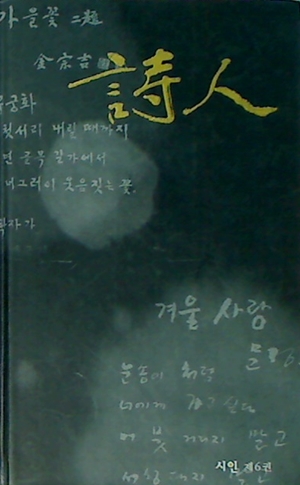 가을꽃 二題
金宗吉
詩人
무궁화
첫서리 내릴 때까지
먼 골목 길가에서
너그러이 웃음짓는 꽃.
겨울 사랑
눈송이 처럼
너에게 가고 싶다
머뭇 거리지 말고
시인 제6권